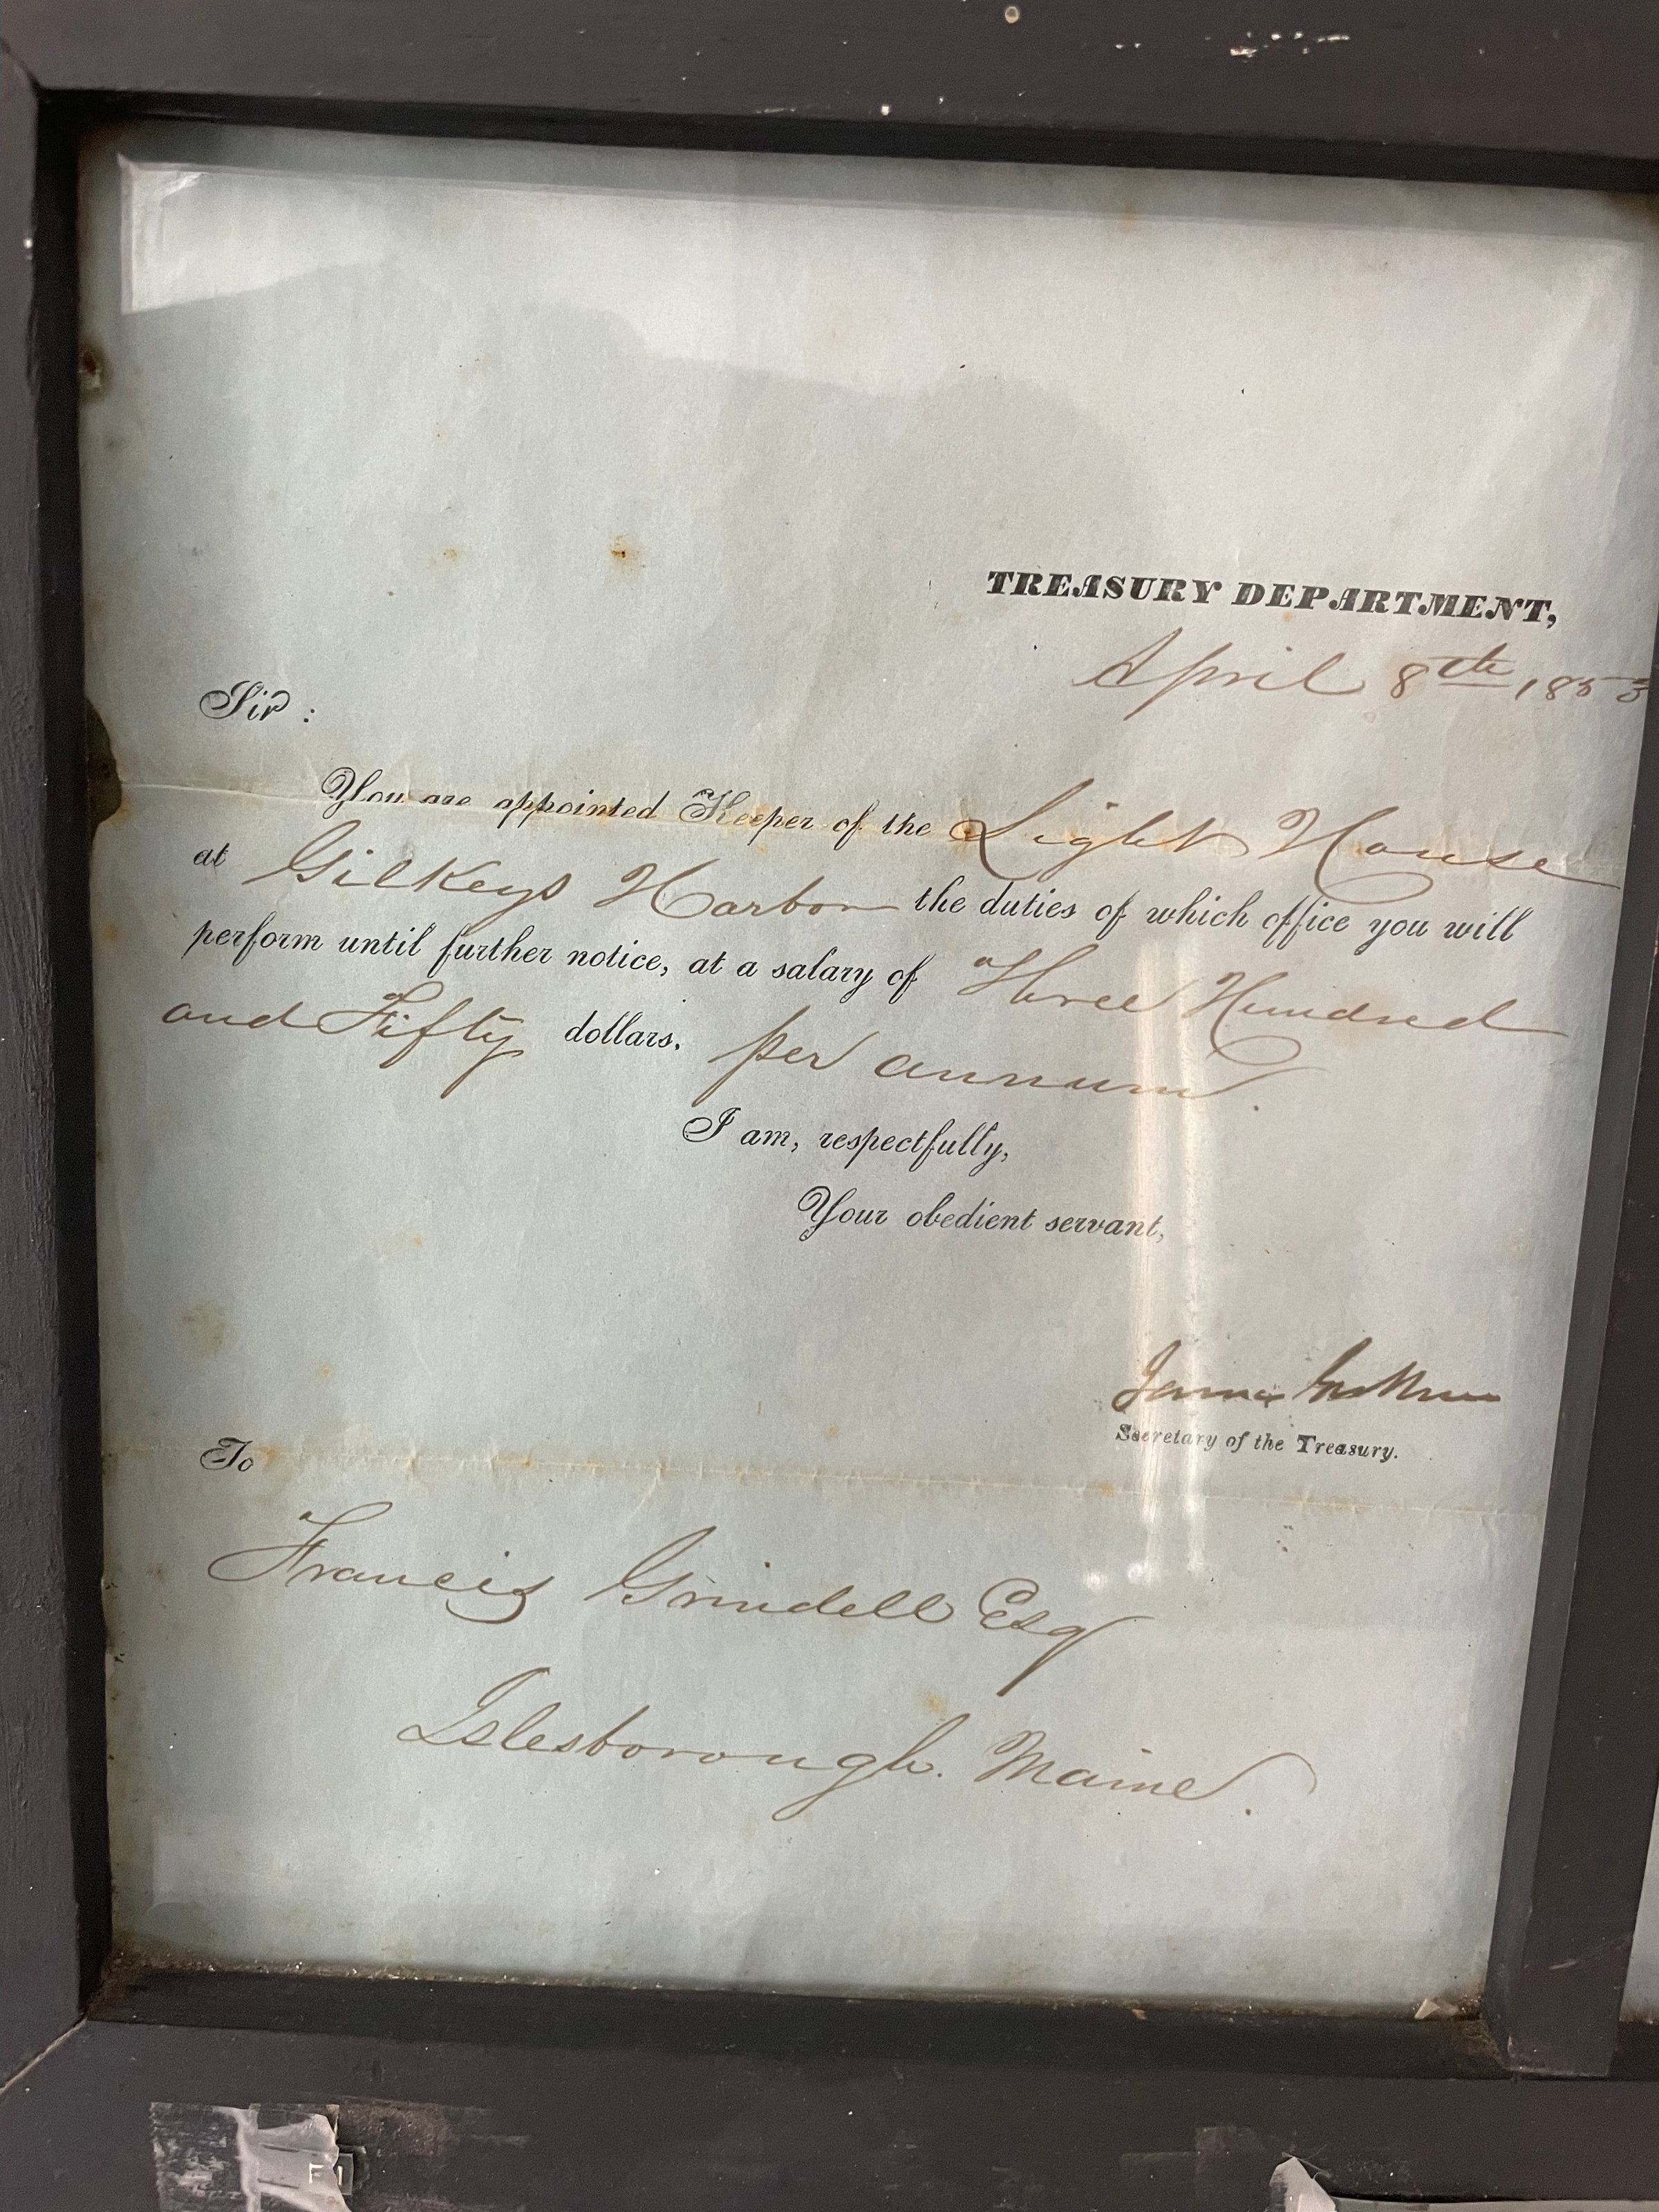 TREASURY DEPARTMENT,
April 8th, 1853
Sir :
You are appointed Keeper of the Light House
at Gilkeys Harbor the duties of which office you will
perform until further notice, at a salary of Three Hundred
and Fifty dollars. per annum.
I am, respectfully,
Your obedient servant,
James Guthrie
Secretary of the Treasury.
To
Francis Grindell Esq
Islesborough. Maine.